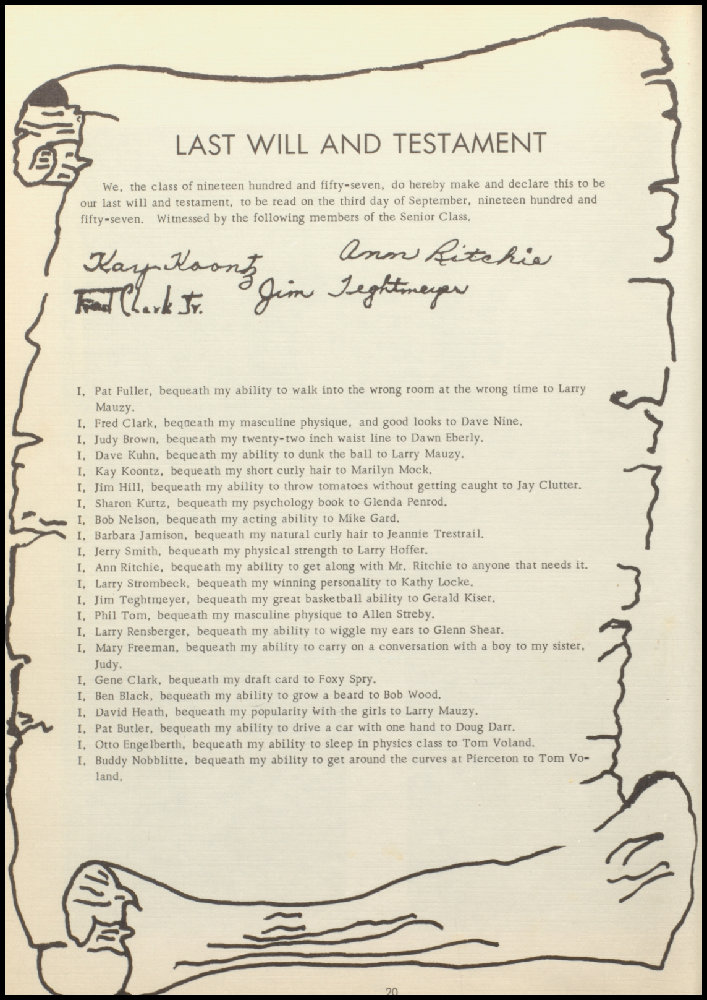 LAST WILL AND TESTAMENT
We, the class of nineteen hundred and fifty-seven, do hereby make and declare this to be
our last will and testament, to be read on the third day of September, nineteen hundred and
fifty-seven. Witnessed by the following members of the Senior Class,
Kay Koontz
Ann Ritchie
Fred Clark Jr.
Jim Teghtmeyer
I, Pat Fuller, bequeath my ability to walk into the wrong room at the wrong time to Larry
Mauzy.
I, Fred Clark, beqneath my masculine physique, and good looks to Dave Nine.
I, Judy Brown, bequeath my twenty-two inch waist line to Dawn Eberly.
I, Dave Kuhn, bequeath my ability to dunk the ball to Larry Mauzy.
I, Kay Koontz, bequeath my short curly hair to Marilyn Mock.
I, Jim Hill, bequeath my ability to throw tomatoes without getting caught to Jay Clutter.
I, Sharon Kurtz, bequeath my psychology book to Glenda Penrod.
I, Bob Nelson, bequeath my acting ability to Mike Gard.
I, Barbara Jamison, bequeath my natural curly hair to Jeannie Trestrail.
I, Jerry Smith, bequeath my physical strength to Larry Hoffer.
I, Ann Ritchie, bequeath my ability to get along with Mr. Ritchie to anyone that needs it.
I, Larry Strombeck, bequeath my winning personality to Kathy Locke.
I, Jim Teghtmeyer, bequeath my great basketball ability to Gerald Kiser.
I, Phil Tom, bequeath my masculine physique to Allen Streby.
I, Larry Rensberger, bequeath my ability to wiggle my ears to Glenn Shear.
I, Mary Freeman, bequeath my ability to carry on a conversation with a boy to my sister,
Judy.
I, Gene Clark, bequeath my draft card to Foxy Spry.
I, Ben Black, bequeath my ability to grow a beard to Bob Wood.
I, David Heath, bequeath my popularity with the girls to Larry Mauzy.
I, Pat Butler, bequeath my ability to drive a car with one hand to Doug Darr.
I, Otto Engelberth, bequeath my ability to sleep in physics class to Tom Voland.
I, Buddy Nobblitte, bequeath my ability to get around the curves at Pierceton to Tom Vo-
land.
20